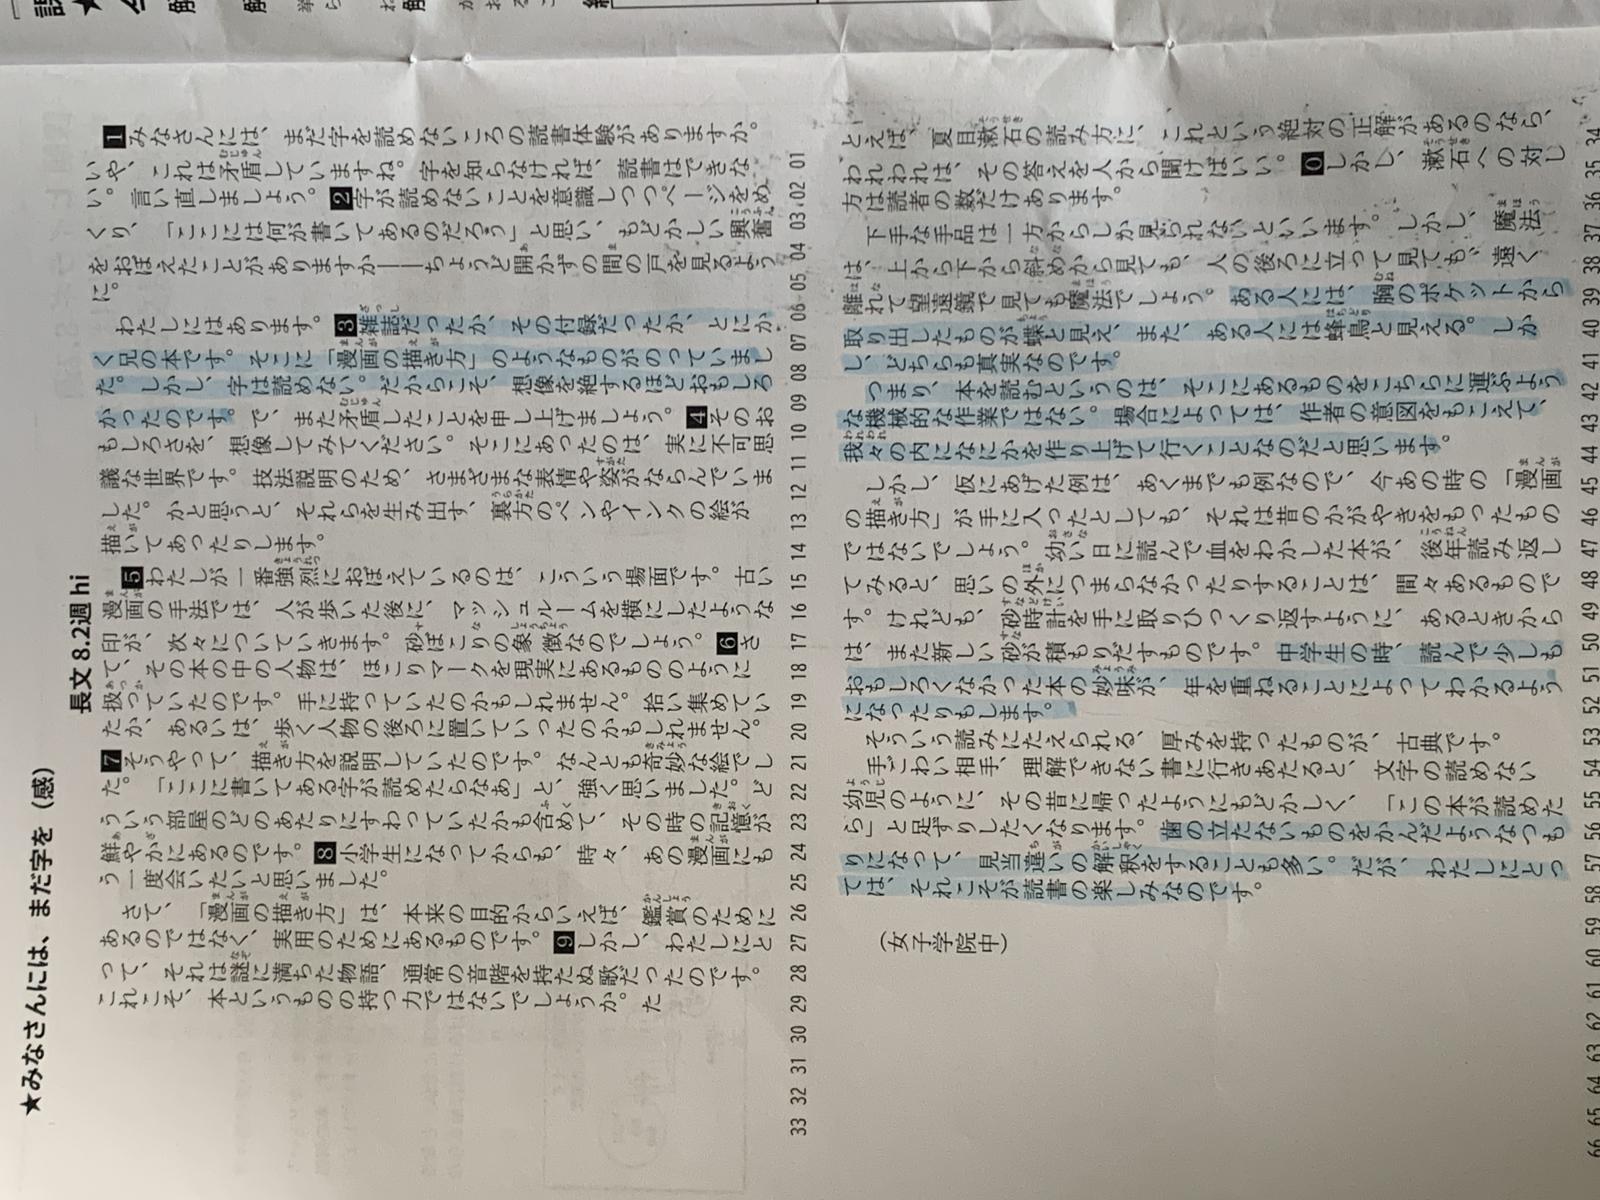 ★みなさんには、まだ字を（感）
長文 8.2週 hi
1みなさんには、まだ字を読めないころの読書体験がありますか。
いや、これは矛盾していますね。字を知らなければ、読書はできな
い。言い直しましょう。2字が読めないことを意識しつつページをめ
くり、「ここには何が書いてあるのだろう」と思い、もどかしい興奮
をおぼえたことがありますか――ちょうど開かずの間の戸を見るよう
に。
わたしにはあります。3雑誌だったか、その付録だったか、とにか
く兄の本です。そこに「漫画の描き方」のようなものがのっていまし
た。しかし、字は読めない。だからこそ、想像を絶するほどおもしろ
かったのです。で、また矛盾したことを申し上げましょう。4そのお
もしろさを、想像してみてください。そこにあったのは、実に不可思
議な世界です。技法説明のため、さまざまな表情や姿がならんでいま
した。かと思うと、それらを生み出す、裏方のペンやインクの絵が
描いてあったりします。
5わたしが一番強烈におぼえているのは、こういう場面です。古い
漫画の手法では、人が歩いた後に、マッシュルームを横にしたような
印が、次々についていきます。砂ぼこりの象徴なのでしょう。6さ
て、その本の中の人物は、ほこりマークを現実にあるもののように
扱っていたのです。手に持っていたのかもしれません。拾い集めてい
たか、あるいは、歩く人物の後ろに置いていったのかもしれません。
7そうやって、描き方を説明していたのです。なんとも奇妙な絵でし
た。「ここに書いてある字が読めたらなあ」と、強く思いました。ど
ういう部屋のどのあたりにすわっていたかも含めて、その時の記憶が
鮮やかにあるのです。8小学生になってからも、時々、あの漫画にも
う一度会いたいと思いました。
さて、「漫画の描き方」は、本来の目的からいえば、鑑賞のために
あるのではなく、実用のためにあるものです。9しかし、わたしにと
って、それは謎に満ちた物語、通常の音階を持たぬ歌だったのです。
これこそ、本というものの持つ力ではないでしょうか。た
33 32 31 30 29 28 27 26 25 24 23 22 21 20 19 18 17 16 15 14 13 12 11 10 09 08 07 06 05 04 03 02 01
とえば、夏目漱石の読み方に、これという絶対の正解があるのなら、
われわれは、その答えを人から聞けばいい。0しかし、漱石への対し
方は読者の数だけあります。
下手な手品は一方からしか見られないといいます。しかし、魔法
は、上から下から斜めから見ても、人の後ろに立って見ても、遠く
離れて望遠鏡で見ても魔法でしょう。ある人には、胸のポケットから
取り出したものが蝶と見え、また、ある人には蜂鳥と見える。しか
し、どちらも真実なのです。
つまり、本を読むというのは、そこにあるものをこちらに運ぶよう
な機械的な作業ではない。場合によっては、作者の意図をもこえて、
我々の内になにかを作り上げて行くことなのだと思います。
しかし、仮にあげた例は、あくまでも例なので、今あの時の「漫画
の描き方」が手に入ったとしても、それは昔のかがやきをもったもの
ではないでしょう。幼い日に読んで血をわかした本が、後年読み返し
てみると、思いの外につまらなかったりすることは、間々あるもので
す。けれども、砂時計を手に取りひっくり返すように、あるときから
は、また新しい砂が積もりだすものです。中学生の時、読んで少しも
おもしろくなかった本の妙味が、年を重ねることによってわかるよう
になったりもします。
そういう読みにたえられる、厚みを持ったものが、古典です。
手ごわい相手、理解できない書に行きあたると、文字の読めない
幼児のように、その昔に帰ったようにもどかしく、「この本が読めた
ら」と足ずりしたくなります。歯の立たないものをかんだようなつも
りになって、見当違いの解釈をすることも多い。だが、わたしにとっ
ては、それこそが読書の楽しみなのです。
（女子学院中）
66 65 64 63 62 61 60 59 58 57 56 55 54 53 52 51 50 49 48 47 46 45 44 43 42 41 40 39 38 37 36 35 34